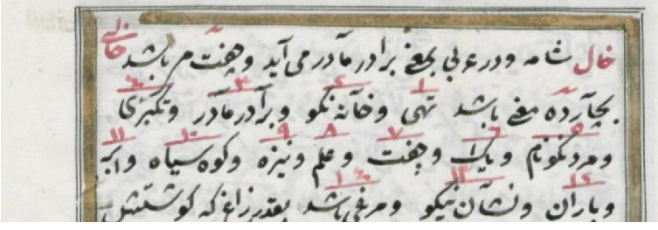 خال شامه و در عربی بمعنی برادر مادر می آید و باشد
بچارده معنی باشد تهی و خانه نکو و برادر مادر و تکبری
و مرد نکونام و جفت و علم و نیزه و کوه سیاه و ابر
و باران و نشان نیکو و مرغی باشد بقدر زاغ که گوشتش